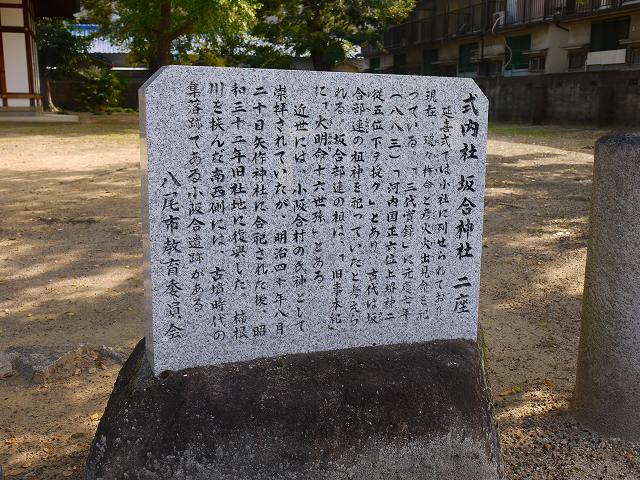 式内社 坂合神社 二座
延喜式では小社に列せられており、
現在、瓊々杵命と彦火火出見命を祀
っている。「三代実録」に元慶七年
(八八三)「河内国正六位上坂合神二
従五位下ヲ授ク」とあり、古代は坂
合部連の祖神を祀っていたと考えら
れる。坂合部連の祖は、「旧事本紀」
に「火明命十六世孫」とある。
近世には、小阪合村の氏神として
崇拝されていたが、明治四十年八月
二十日矢作神社に合祀された後、昭
和三十二年旧社地に復興した。楠根
川を挟んだ南西側には、古墳時代の
集落跡である小阪合遺跡がある
八尾市教育委員会